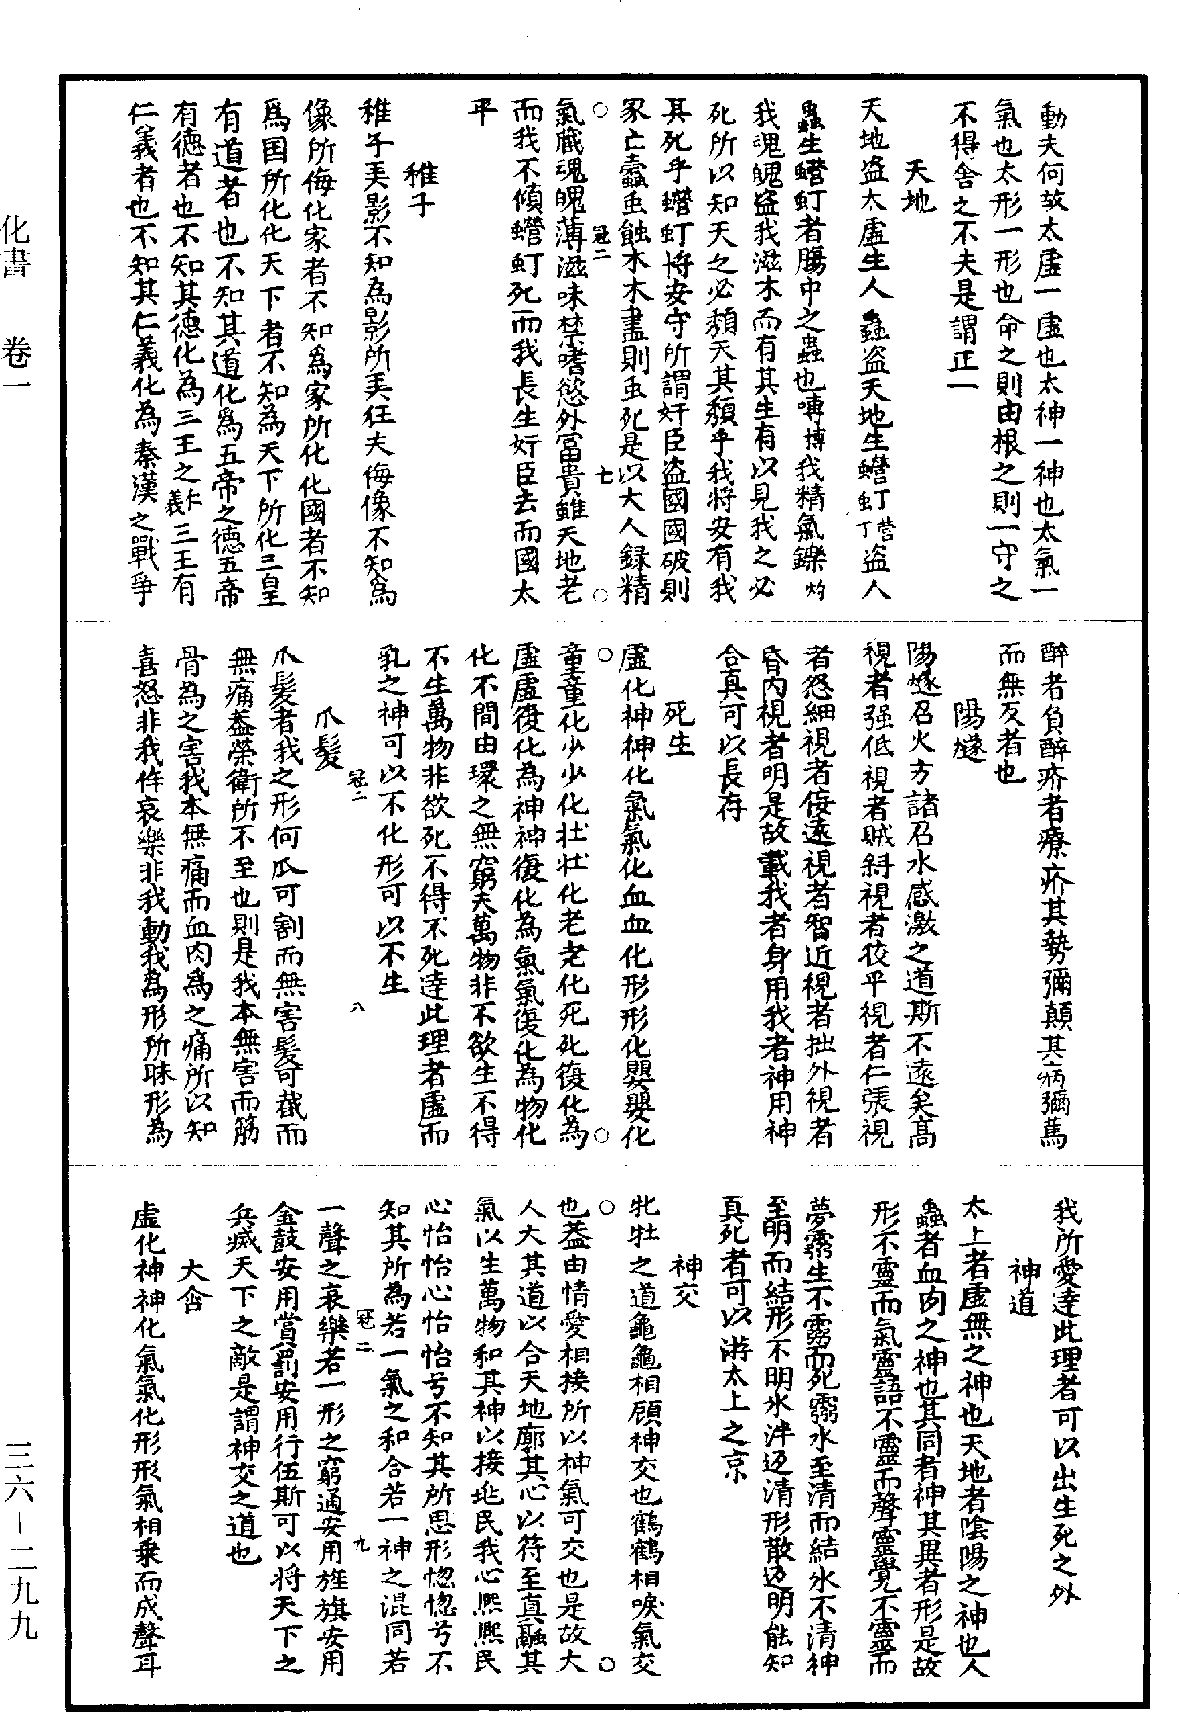 動夫何故太虛一虛也太神一神也太氣一
氣也太形一形也命之則由根之則一守之
不得舍之不夫是謂正一
天地
天地盜太虛生人蟲盜天地生蟾虰營虰丁盜人
蟲生蟾虰者腸中之蟲也嘑搏我精氣鑠灼
我魂魄盜我滋木而有其生有以見我之必
死所以知天之必頹天其頹乎我將安有我
其死乎蟾虰將安守所謂奸臣盜國國破則
家亡蠹虫蝕木木盡則虫死是以大人錄精
氣藏魂魄薄滋味禁嗜慾外富貴雖天地老
而我不傾蟾虰死而我長生奸臣去而國太
平
稚子
稚子弄影不知為影所弄狂夫侮像不知為
像所侮化家者不知為家所化化國者不知
為国所化化天下者不知為天下所化三皇
有道者也不知其道化為五帝之德五帝
有德者也不知其德化為三王之仁義三王有
仁義者也不知其仁義化為秦漢之戰爭
醉者負醉疥者療疥其勢彌顛其病彌篤
而無反者也
陽燧
陽燧召火方諸召水感激之道斯不遠矣高
視者强低視者賊斜視者狡平視者仁張視
者怒細視者佞遠視者智近視者拙外視者
昏內視者明是故載我者身用我者神用神
合真可以長存
死生
虛化神神化氣氣化血血化形形化嬰嬰化
童童化少少化壯壯化老老化死死復化為
虛虛復化為神神復化為氣氣復化為物化
化不間由環之無窮夫萬物非不欲生不得
不生萬物非欲死不得不死達此理者虛而
乳之神可以不化形可以不生
爪髮
爪髮者我之形何爪可割而無害髮可截而
無痛蓋榮衛所不至也則是我本無害而筋
骨為之害我本無痛而血肉為之痛所以知
喜怒非我作哀樂非我動我為形所昧形為
我所愛達此理者可以出生死之外
神道
太上者虛無之神也天地者陰陽之神也人
蟲者血肉之神也其同者神其異者形是故
形不靈而氣靈語不靈而聲靈覺不靈而
夢靈生不靈而死靈水至清而結冰不清神
至明而結形不明冰泮返清形散返明能知
真死者可以游太上之京
神交
牝牡之道龜龜相顧神交也鶴鶴相唳氣交
也蓋由情愛相接所以神氣可交也是故大
人大其道以合天地廓其心以符至真融其
氣以生萬物和其神以接兆民我心熙熙民
心怡怡心怡怡兮不知其所思形惚惚兮不
知其所為若一氣之和合若一神之混同若
一聲之哀樂若一形之窮通安用旌旗安用
金鼓安用賞罰安用行伍斯可以將天下之
兵滅天下之敵是謂神交之道也
大含
虛化神神化氣氣化形形氣相乗而成聲耳
冠二 七
冠二 八
冠二 九
化書 卷一
三六－二九九